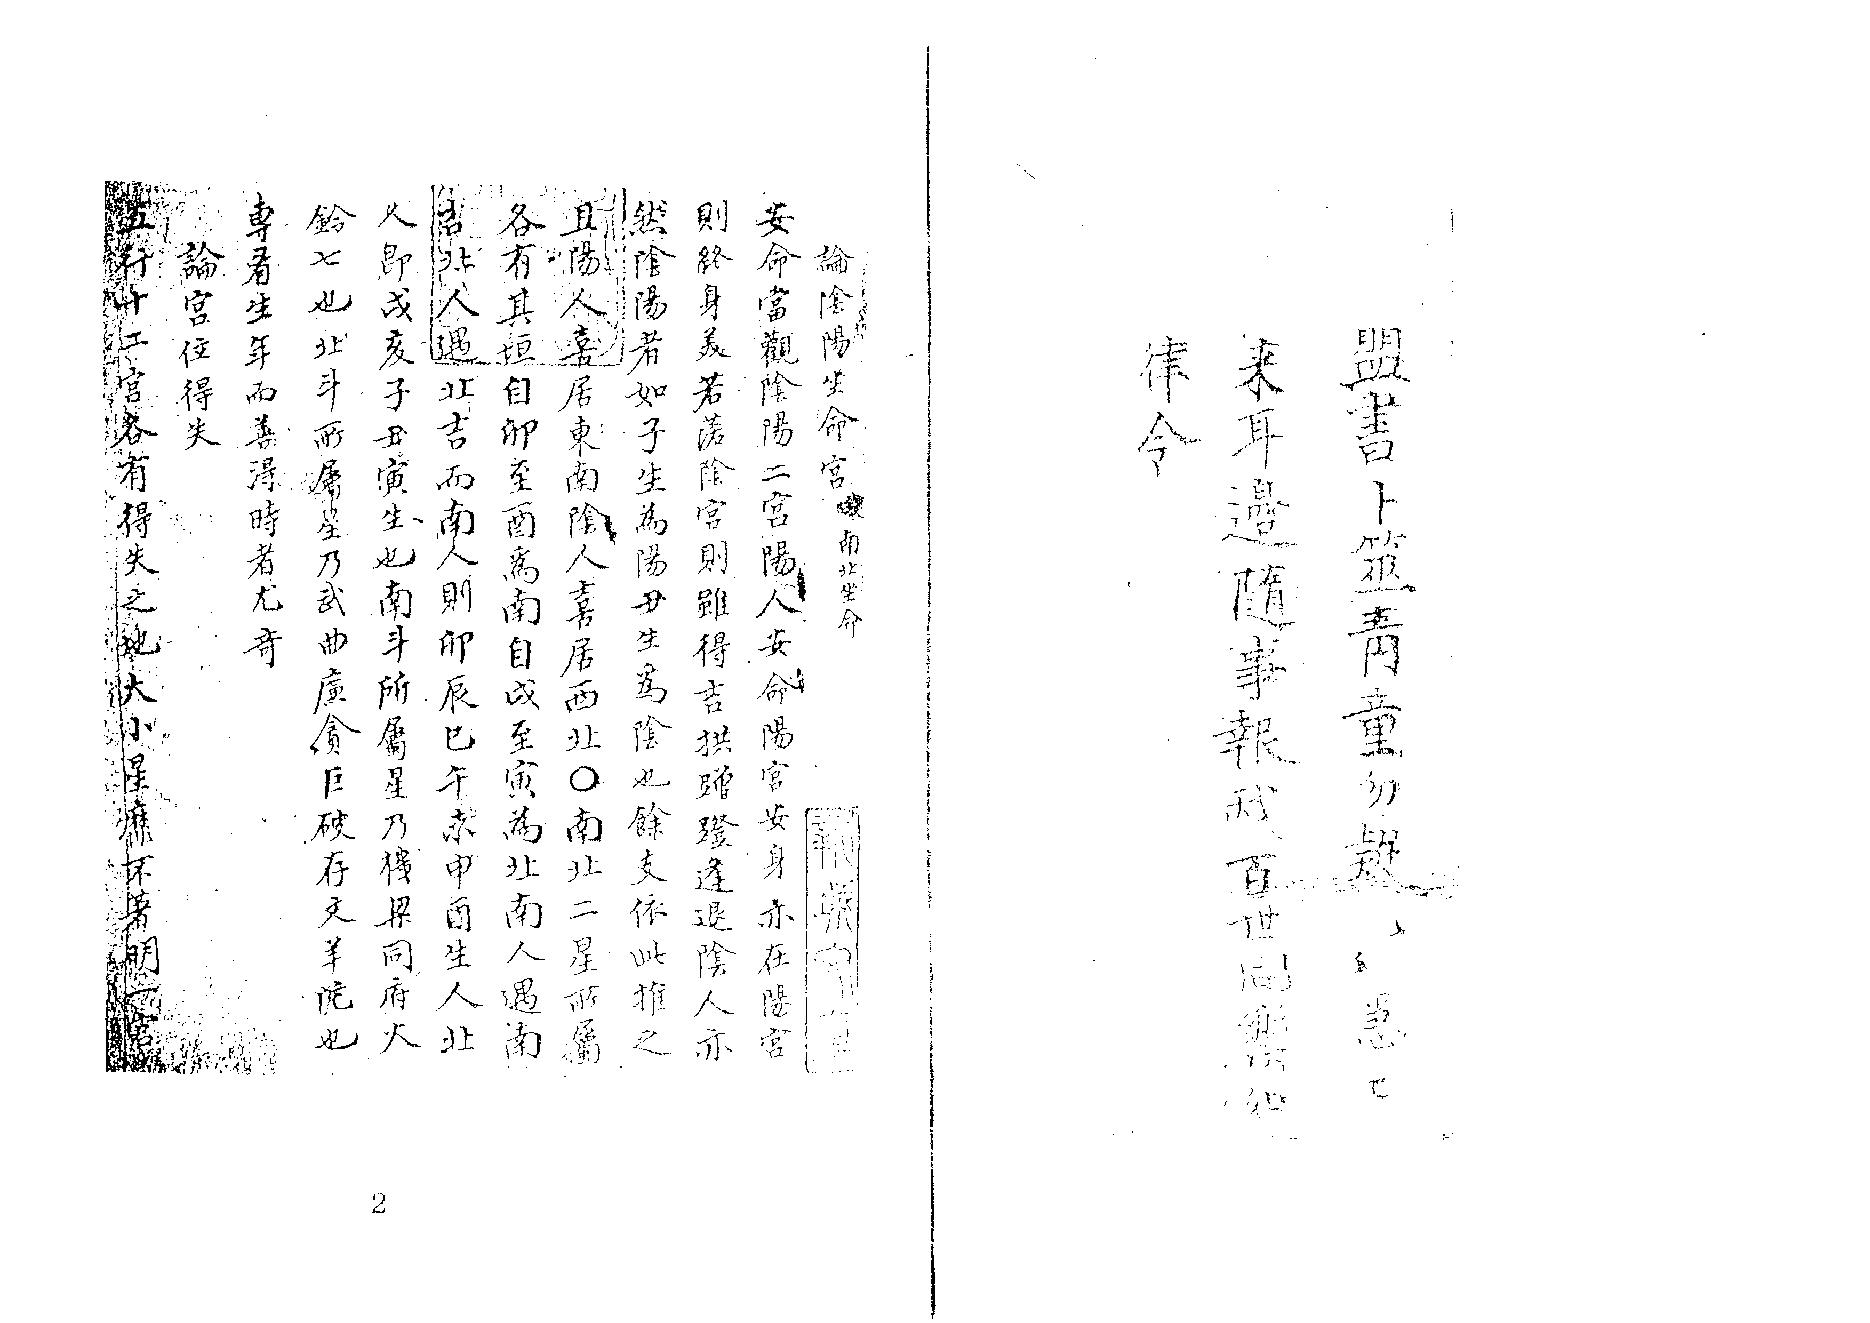 盟書卜筮青童勿疑急
来耳邉随事報我百世同樂如
律令
論陰陽生命宮南北生命
安命當觀陰陽二宮陽人安命陽宮安身亦在陽宮
則終身美若落陰宮則雖得吉拱蹭蹬逢退陰人亦
然陰陽者如子生為陽丑生為陰也餘支依此推之
且陽人喜居東南陰人喜居西北〇南北二星所属
各有其垣自卯至酉爲南自戌至寅為北南人遇南
吉北人遇北吉而南人則卯辰巳午未申酉生人北
人即戌亥子丑寅生也南斗所屬星乃機梁同府火
鈴七也北斗所属星乃武曲廉貪巨破存文羊陀也
専看生年而善淂時者尤竒
論宮位得失
五行十二宮各有得失之地大小星癍不著明一宮
2